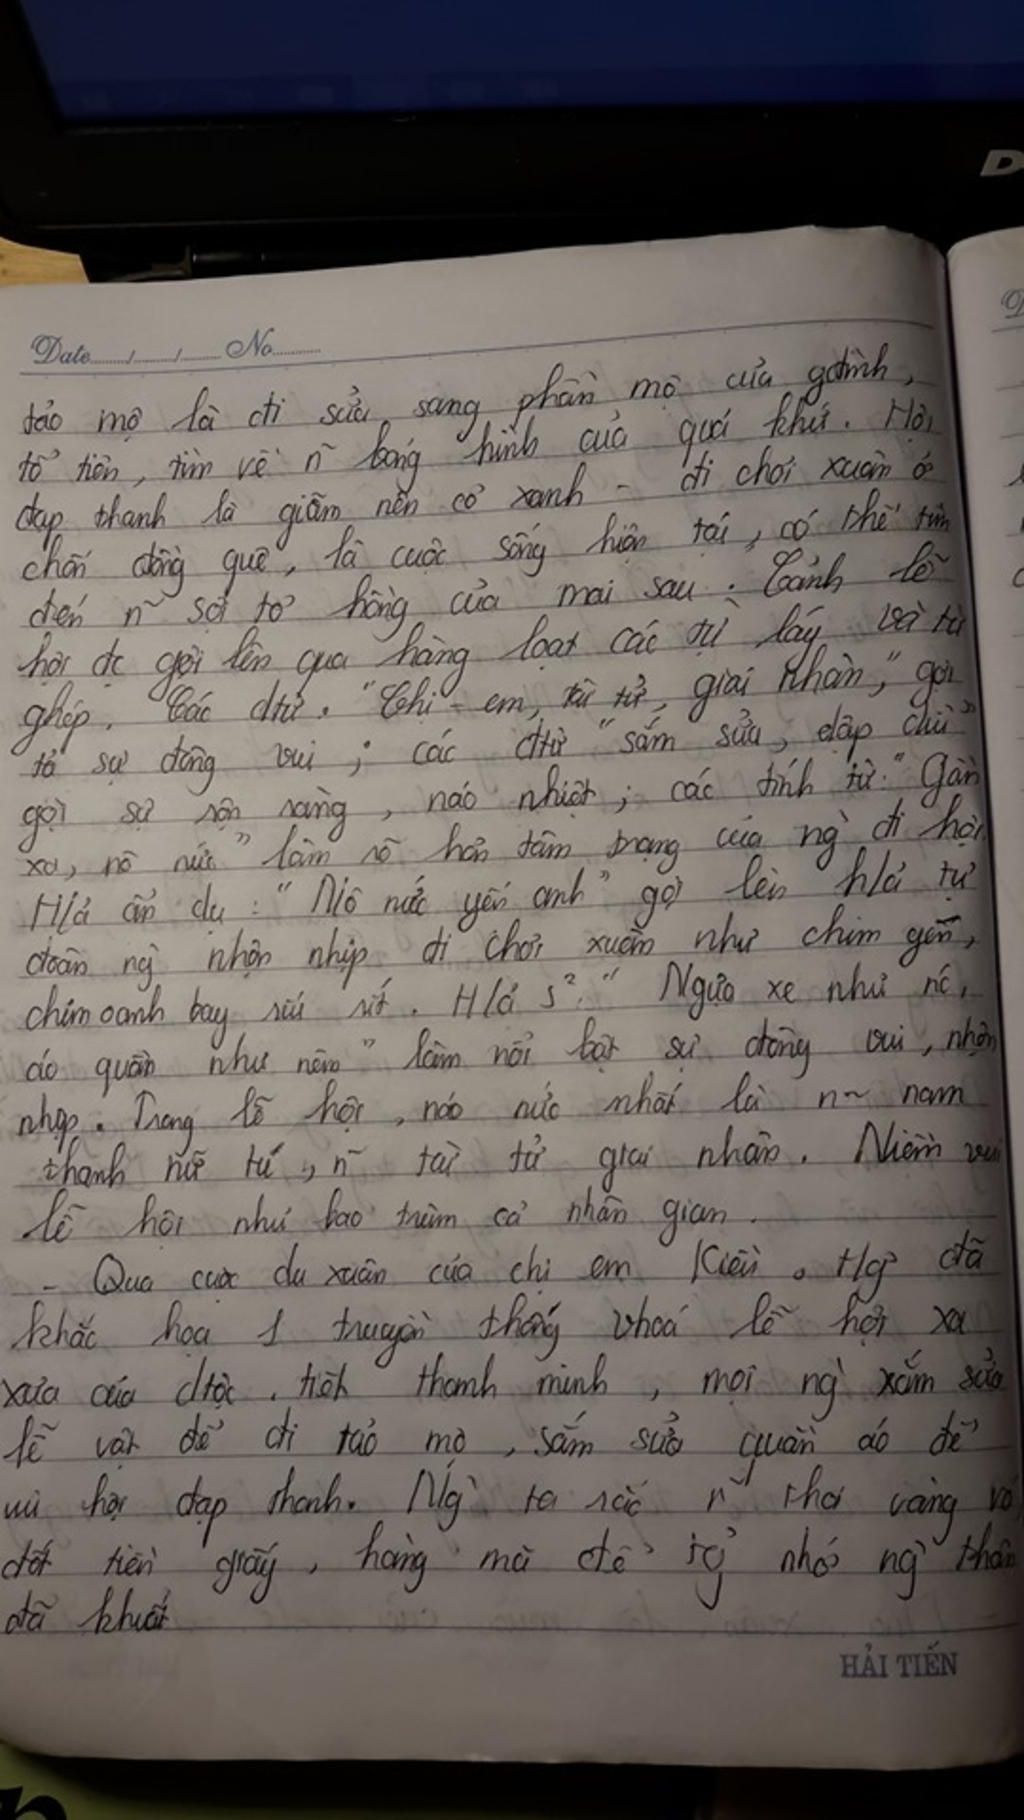 Date ..../..../.... No..........
tảo mộ là đi sửa sang phần mộ của gđình,
tổ tiên, tìm về n~ bóng hình của quá khứ. Hội
đạp thanh là giẫm nên cỏ xanh - đi chơi xuân ở
chốn đồng quê, là cuộc sống hiện tại, có thể tìm
đến n~ sợi tơ hồng của mai sau. Cảnh lễ
hội đc gợi lên qua hàng loạt các từ láy và từ
ghép. Các dtừ. "Chị - em, tài tử, giai nhân," gợi
tả sự đông vui; các đtừ "sắm sửa, dập dìu"
gợi sự rộn ràng, náo nhiệt; các tính từ: "Gần
xa, nô nức" làm rõ hơn tâm trạng của ng` đi hội.
H/ả ẩn dụ: "Nô nức yến anh" gợi lên h/ả từ
đoàn ng` nhộn nhịp đi chơi xuân như chim yến,
chim oanh bay ríu rít. H/ả s²: "Ngựa xe như nc,
áo quần như nêm" làm nổi bật sự đông vui, nhộn
nhịp. Trong lễ hội, náo nức nhất là n~ nam
thanh nữ tú, n~ tài tử giai nhân. Niềm vui
lễ hội như bao trùm cả nhân gian.
- Qua cuộc du xuân của chị em Kiều. tgỉ đã
khắc họa 1 truyền thống vhoá lễ hội xa
xưa của dtộc. tiết thanh minh, mọi ng` xắm sửa
lễ vật để đi tảo mộ, sắm sửa quần áo để
vui hội đạp thanh. Ng` ta rắc n~ thoi vàng vó
đốt tiền giấy, hàng mã để tg nhớ ng` thân
đã khuất
HẢI TIẾN